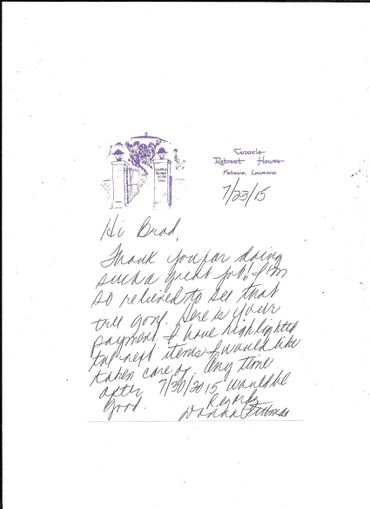 Cenacle
Retreat House
Metairie, Louisiana
7/23/15
Hi Brad,
Thank you for doing
such a great job! I'm
so relieved to see that
tree gone. Here is your
payment. I have highlighted
the next items I would like
taken care of. Any time
after 7/30/2015 would be
good.
Regards
Donna